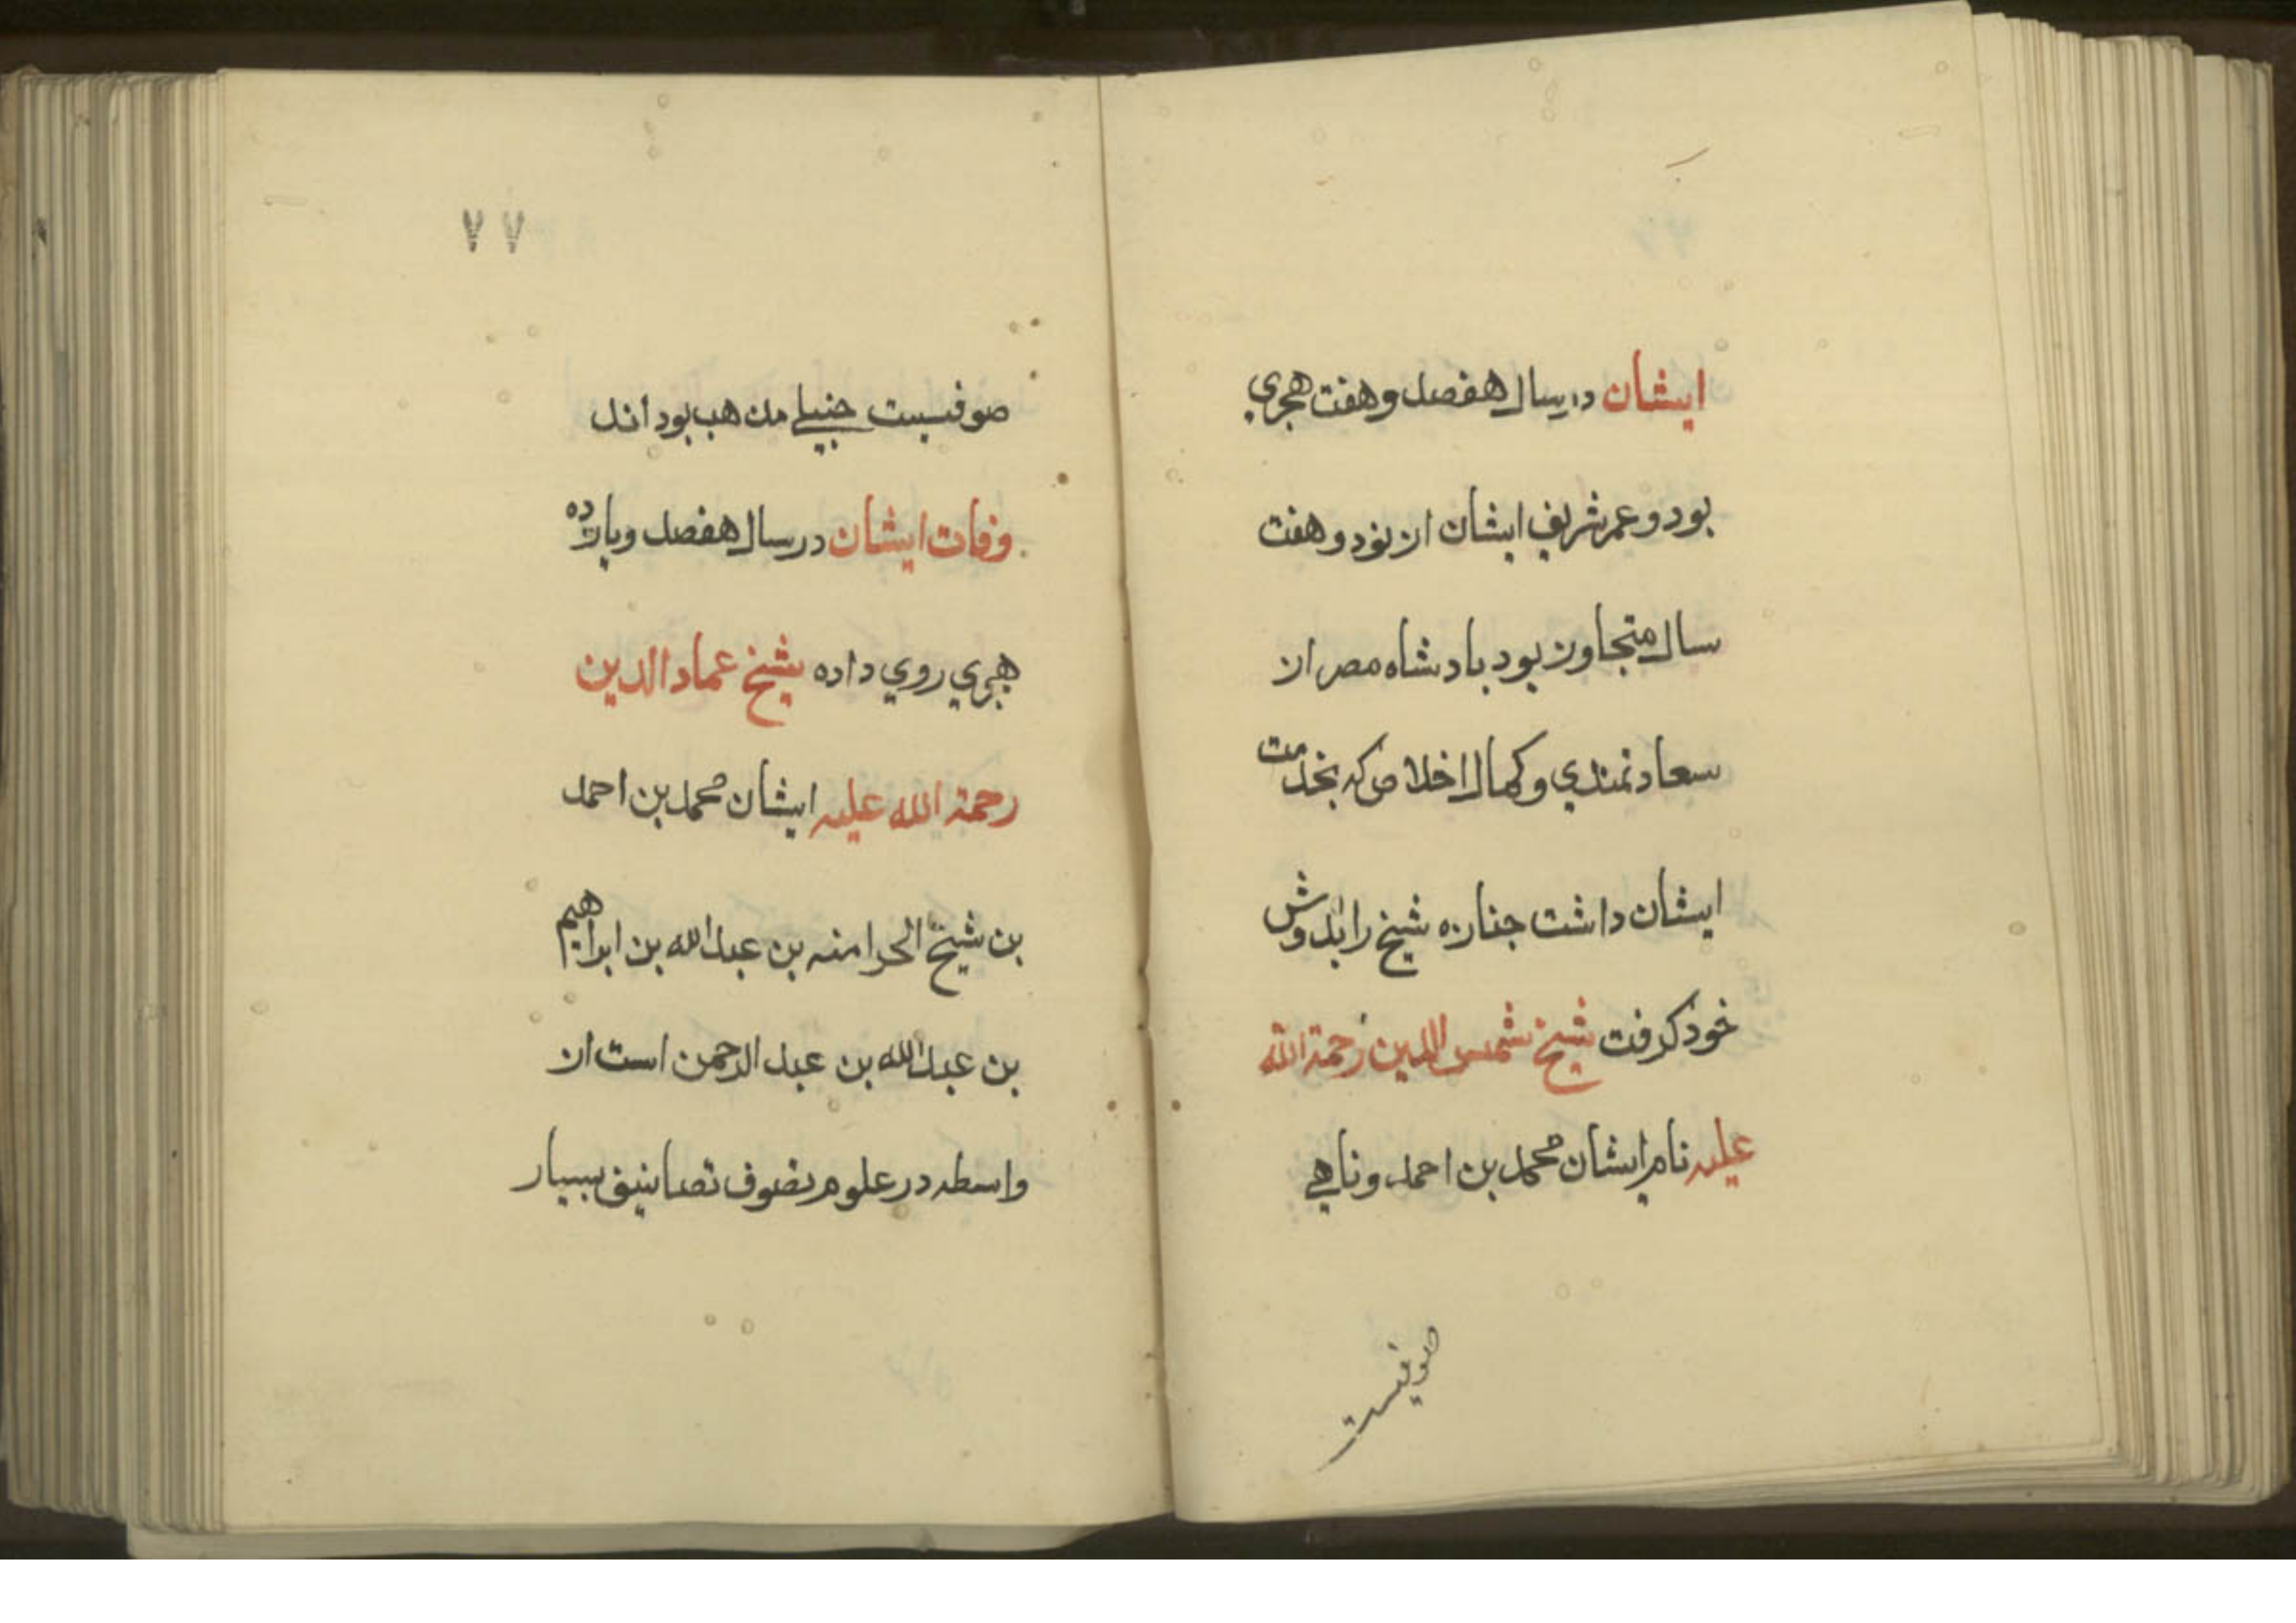 ایشان در سال هفصد و هفت هجري
بود و عمر شریف ایشان از نود و هفت
سال متجاوز بود بادشاه مصر از
سعادتمندي و کمال اخلاص که بخدمت
ایشان داشت جنازه شیخ را بدوش
خود کرفت شیخ شمس الدین رحمة الله
علیه نام ایشان محمد بن احمد و ناهي
صوفیست
٧٧
صوفیست حنبلي مذهب بود اند
وفات ایشان در سال هفصد و یازده
هجري روي داده شیخ عماد الدین
رحمة الله علیه ایشان محمد بن احمد
بن شیخ الحرامنه بن عبد الله بن ابراهیم
بن عبد الله بن عبد الرحمن است از
واسطه در علوم تصوف تصانیف بسیار